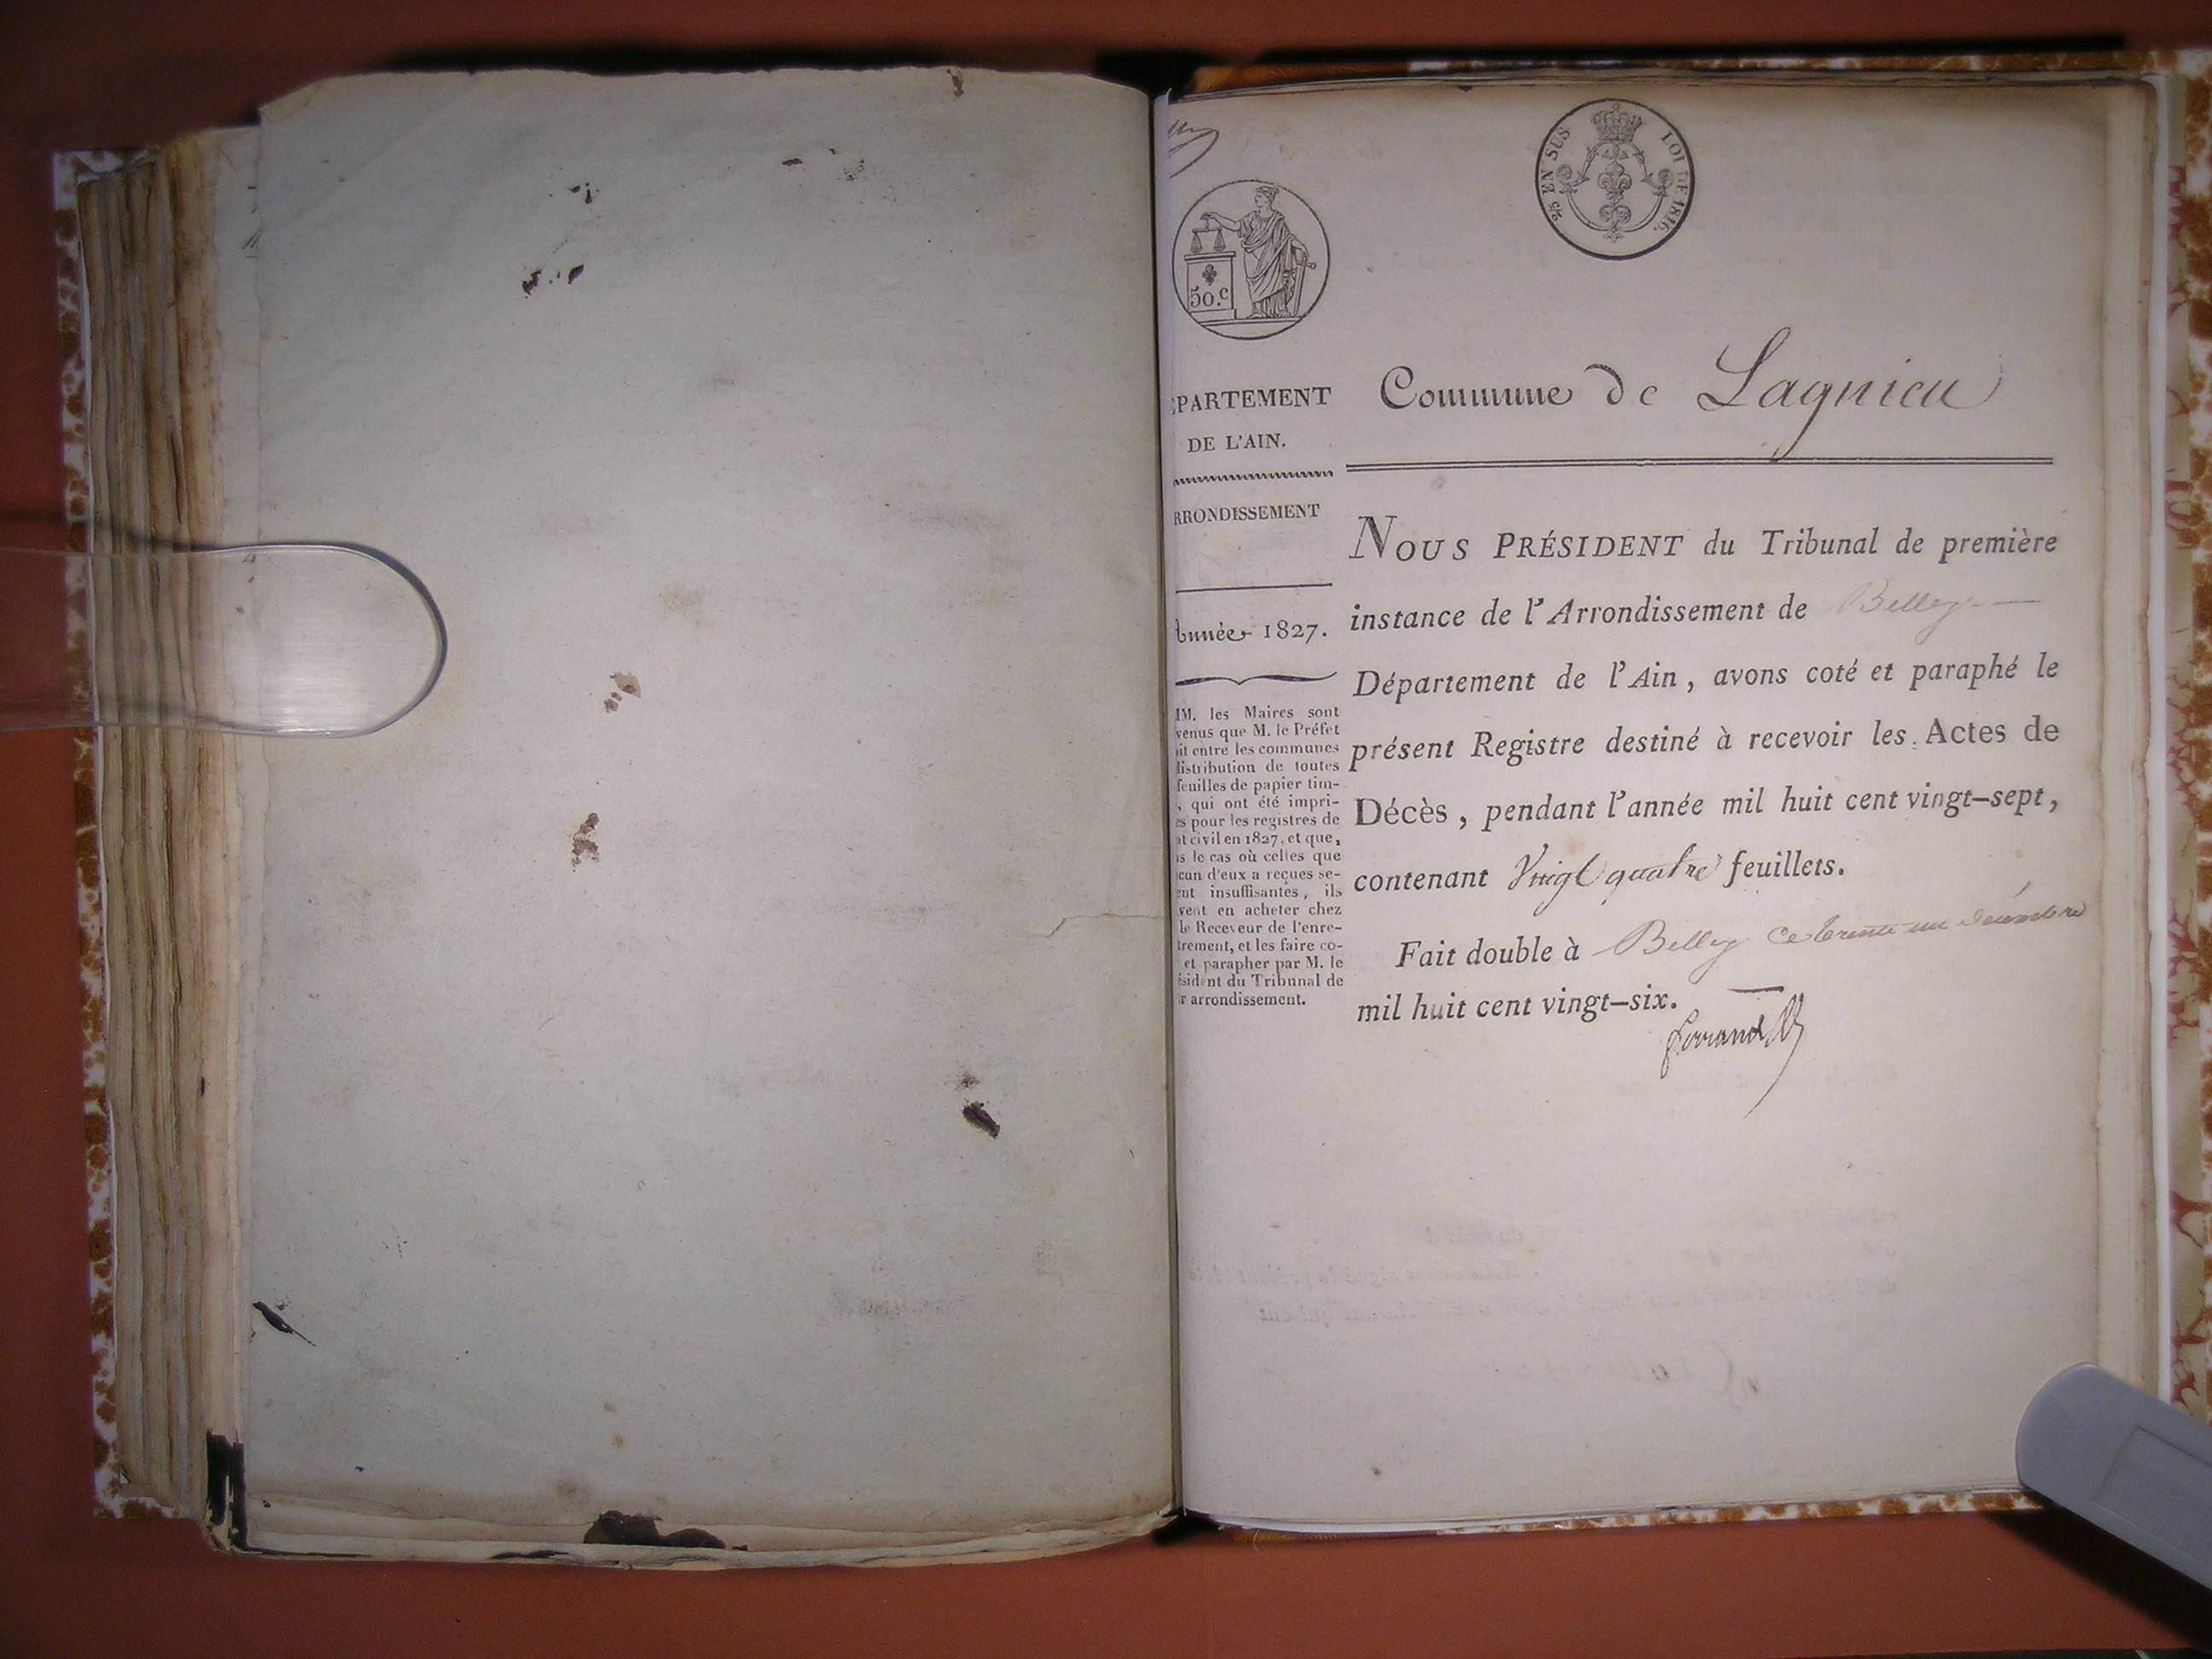 2/5 EN SUS LOI DE 1816.
50.c
PARTEMENT
DE L'AIN.
RRONDISSEMENT
Année 1827.
M. les Maires sont
venus que M. le Préfet
it entre les communes
distribution de toutes
feuilles de papier tim-
, qui ont été impri-
es pour les registres de
at civil en 1827, et que,
s le cas où celles que
cun d'eux a reçues se-
ent insuffisantes, ils
vent en acheter chez
le Receveur de l'enre-
trement, et les faire co-
et parapher par M. le
ésident du Tribunal de
r arrondissement.
Commune de Lagnieu
NOUS PRÉSIDENT du Tribunal de première
instance de l'Arrondissement de Belley
Département de l'Ain, avons coté et paraphé le
présent Registre destiné à recevoir les Actes de
Décès, pendant l'année mil huit cent vingt-sept,
contenant Vingt quatre feuillets.
Fait double à Belley ce trente un décembre
mil huit cent vingt-six.